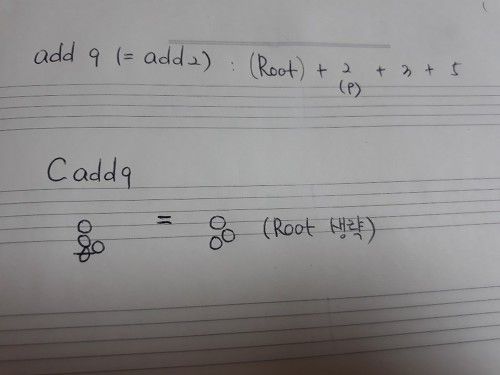 add 9 (= add2) : (Root) + 2 + 3 + 5
(P)
Cadd9
= (Root 생략)